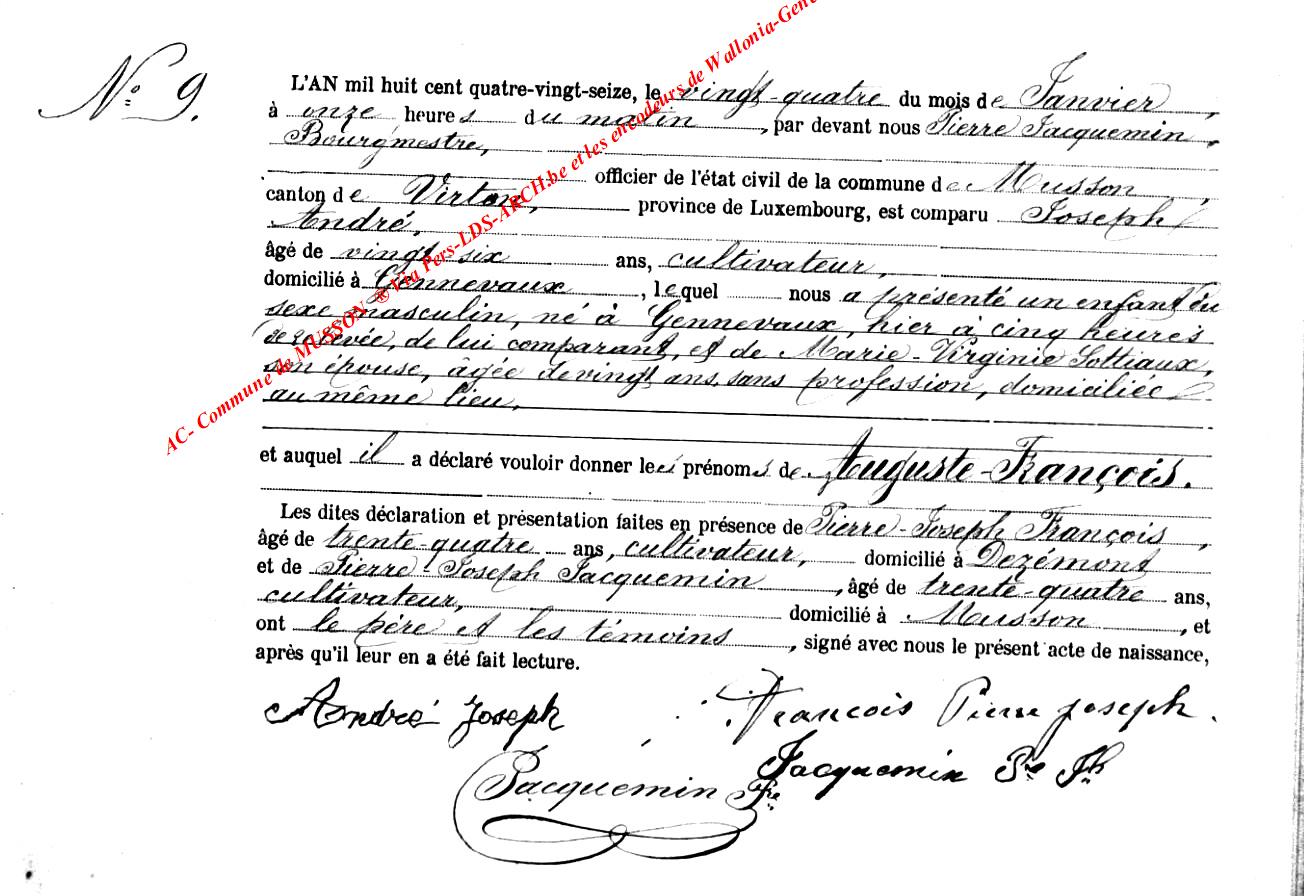 N° 9.
L'AN mil huit cent quatre-vingt-seize, le vingt-quatre du mois de Janvier,
à onze heures du matin, par devant nous Pierre Jacquemin,
Bourgmestre,
officier de l'état civil de la commune de Musson,
canton de Virton, province de Luxembourg, est comparu Joseph
André,
âgé de vingt six ans, cultivateur,
domicilié à Gennevaux, lequel nous a présenté un enfant du
sexe masculin, né à Gennevaux, hier à cinq heures
de relevée, de lui comparant, et de Marie-Virginie Sottiaux,
son épouse, âgée de vingt ans, sans profession, domiciliée
au même lieu,
et auquel il a déclaré vouloir donner les prénoms de Auguste-François.
Les dites déclaration et présentation faites en présence de Pierre-Joseph François,
âgé de trente-quatre ans, cultivateur, domicilié à Dezémont
et de Pierre-Joseph Jacquemin, âgé de trente-quatre ans,
cultivateur, domicilié à Musson, et
ont le père et les témoins, signé avec nous le présent acte de naissance,
après qu'il leur en a été fait lecture.
André Joseph
François Pierre Joseph.
Jacquemin Pre Jh
Jacquemin Pre
AC- Commune de MUSSON ® Via Pers-LDS-ARCH.be et les encodeurs de Wallonia-Gene